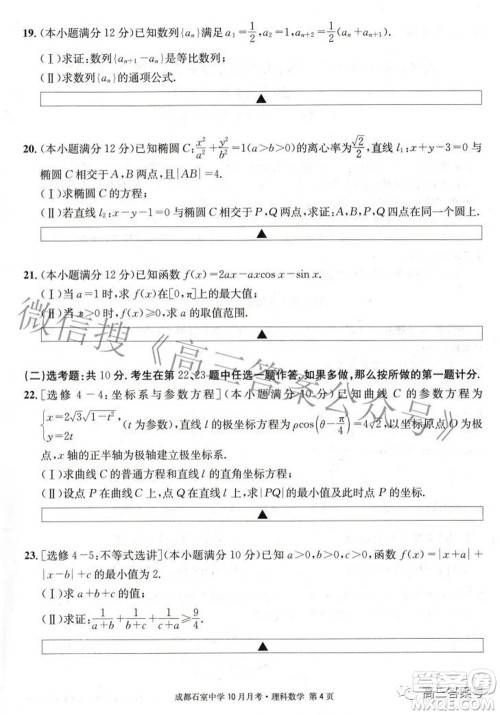 19. (本小题满分 12 分)已知数列{aₙ}满足 a₁=1/2, a₂=1, (aₙ₊₁)
(Ⅰ)求证:数列{aₙ₊₁-aₙ}是等比数列;
(Ⅱ)求数列{aₙ}的通项公式.
▲
20. (本小题满分 12 分)已知椭圆 C: x²/a²+y²/b²=1(a>b>0)的离心率为√2/2, 直线 l₁: x+y-3=0 与
椭圆 C 相交于 A, B 两点,且|AB|=
(Ⅰ)求椭圆 C 的方程;
(Ⅱ)若直线 l₂: 与椭圆 C 相交于 P, Q 两点,求证:A, P, B, Q 四点在同一个圆上.
▲
21. (本小题满分 12 分)已知函数 f(x)=2ax-axcos x-sin x.
(Ⅰ)当 a=1时,求 f(x)在[0,π]上的最大值;
(Ⅱ)当 x≥0时, f(x)≥0,求 a 的取值范围.
▲
(二)选考题:共 10 分.考生在第 22、23 题中任选一题作答.如果多做,那么按所做的第一题计分.
22. [选修 4-4:坐标系与参数方程](本小题满分 10 分)已知曲线 C 的参数方程为
{x=2√3√(1-t²), y=2t (t 为参数),直线 l 的极坐标方程为 ρcos(θ-π/4)=4√2,以坐标原点为极点, x
轴的正半轴为极轴建立极坐标系.
(Ⅰ)求曲线 C 的普通方程和直线 l 的直角坐标方程;
(Ⅱ)设点 P 在曲线 C 上,点 Q 在直线 l 上,求|PQ|的最小值及此时点 P 的坐标.
▲
23. [选修 4-5:不等式选讲](本小题满分 10 分)已知 a>0, b>0, c>0,函数 f(x)=|x+a|+
|x-b|+c 的最小值为 2.
(Ⅰ)求 a+b+c 的值;
(Ⅱ)求证: 1/(a+b)+1/(b+c)+1/(c+a)≥9/4.
▲
成都石室中学 10 月月考·理科数学 第 4 页
微信搜《高三答案公众号》
高三答案号